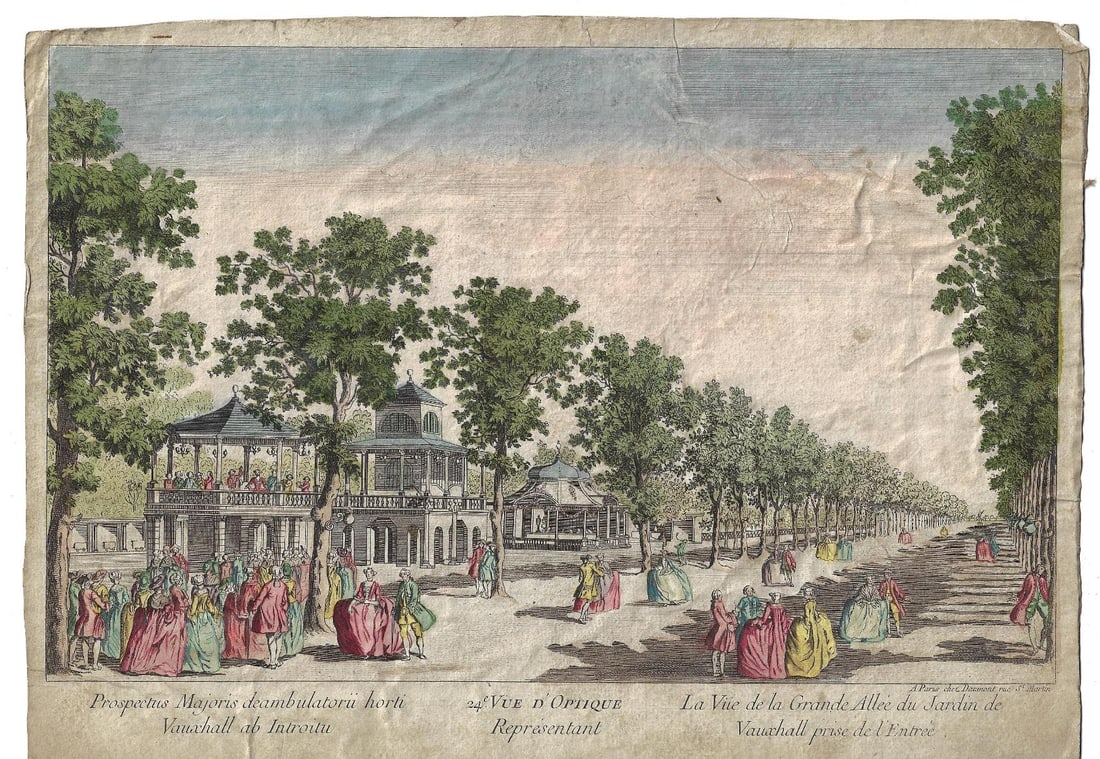 A Paris chez Daumont rue St. Martin
Prospectus Majoris deambulatorii horti
Vauxhall ab Introitu
24e. VUE D'OPTIQUE
Représentant
La Vüe de la Grande Allée du Jardin de
Vauxhall prise de l'Entrée